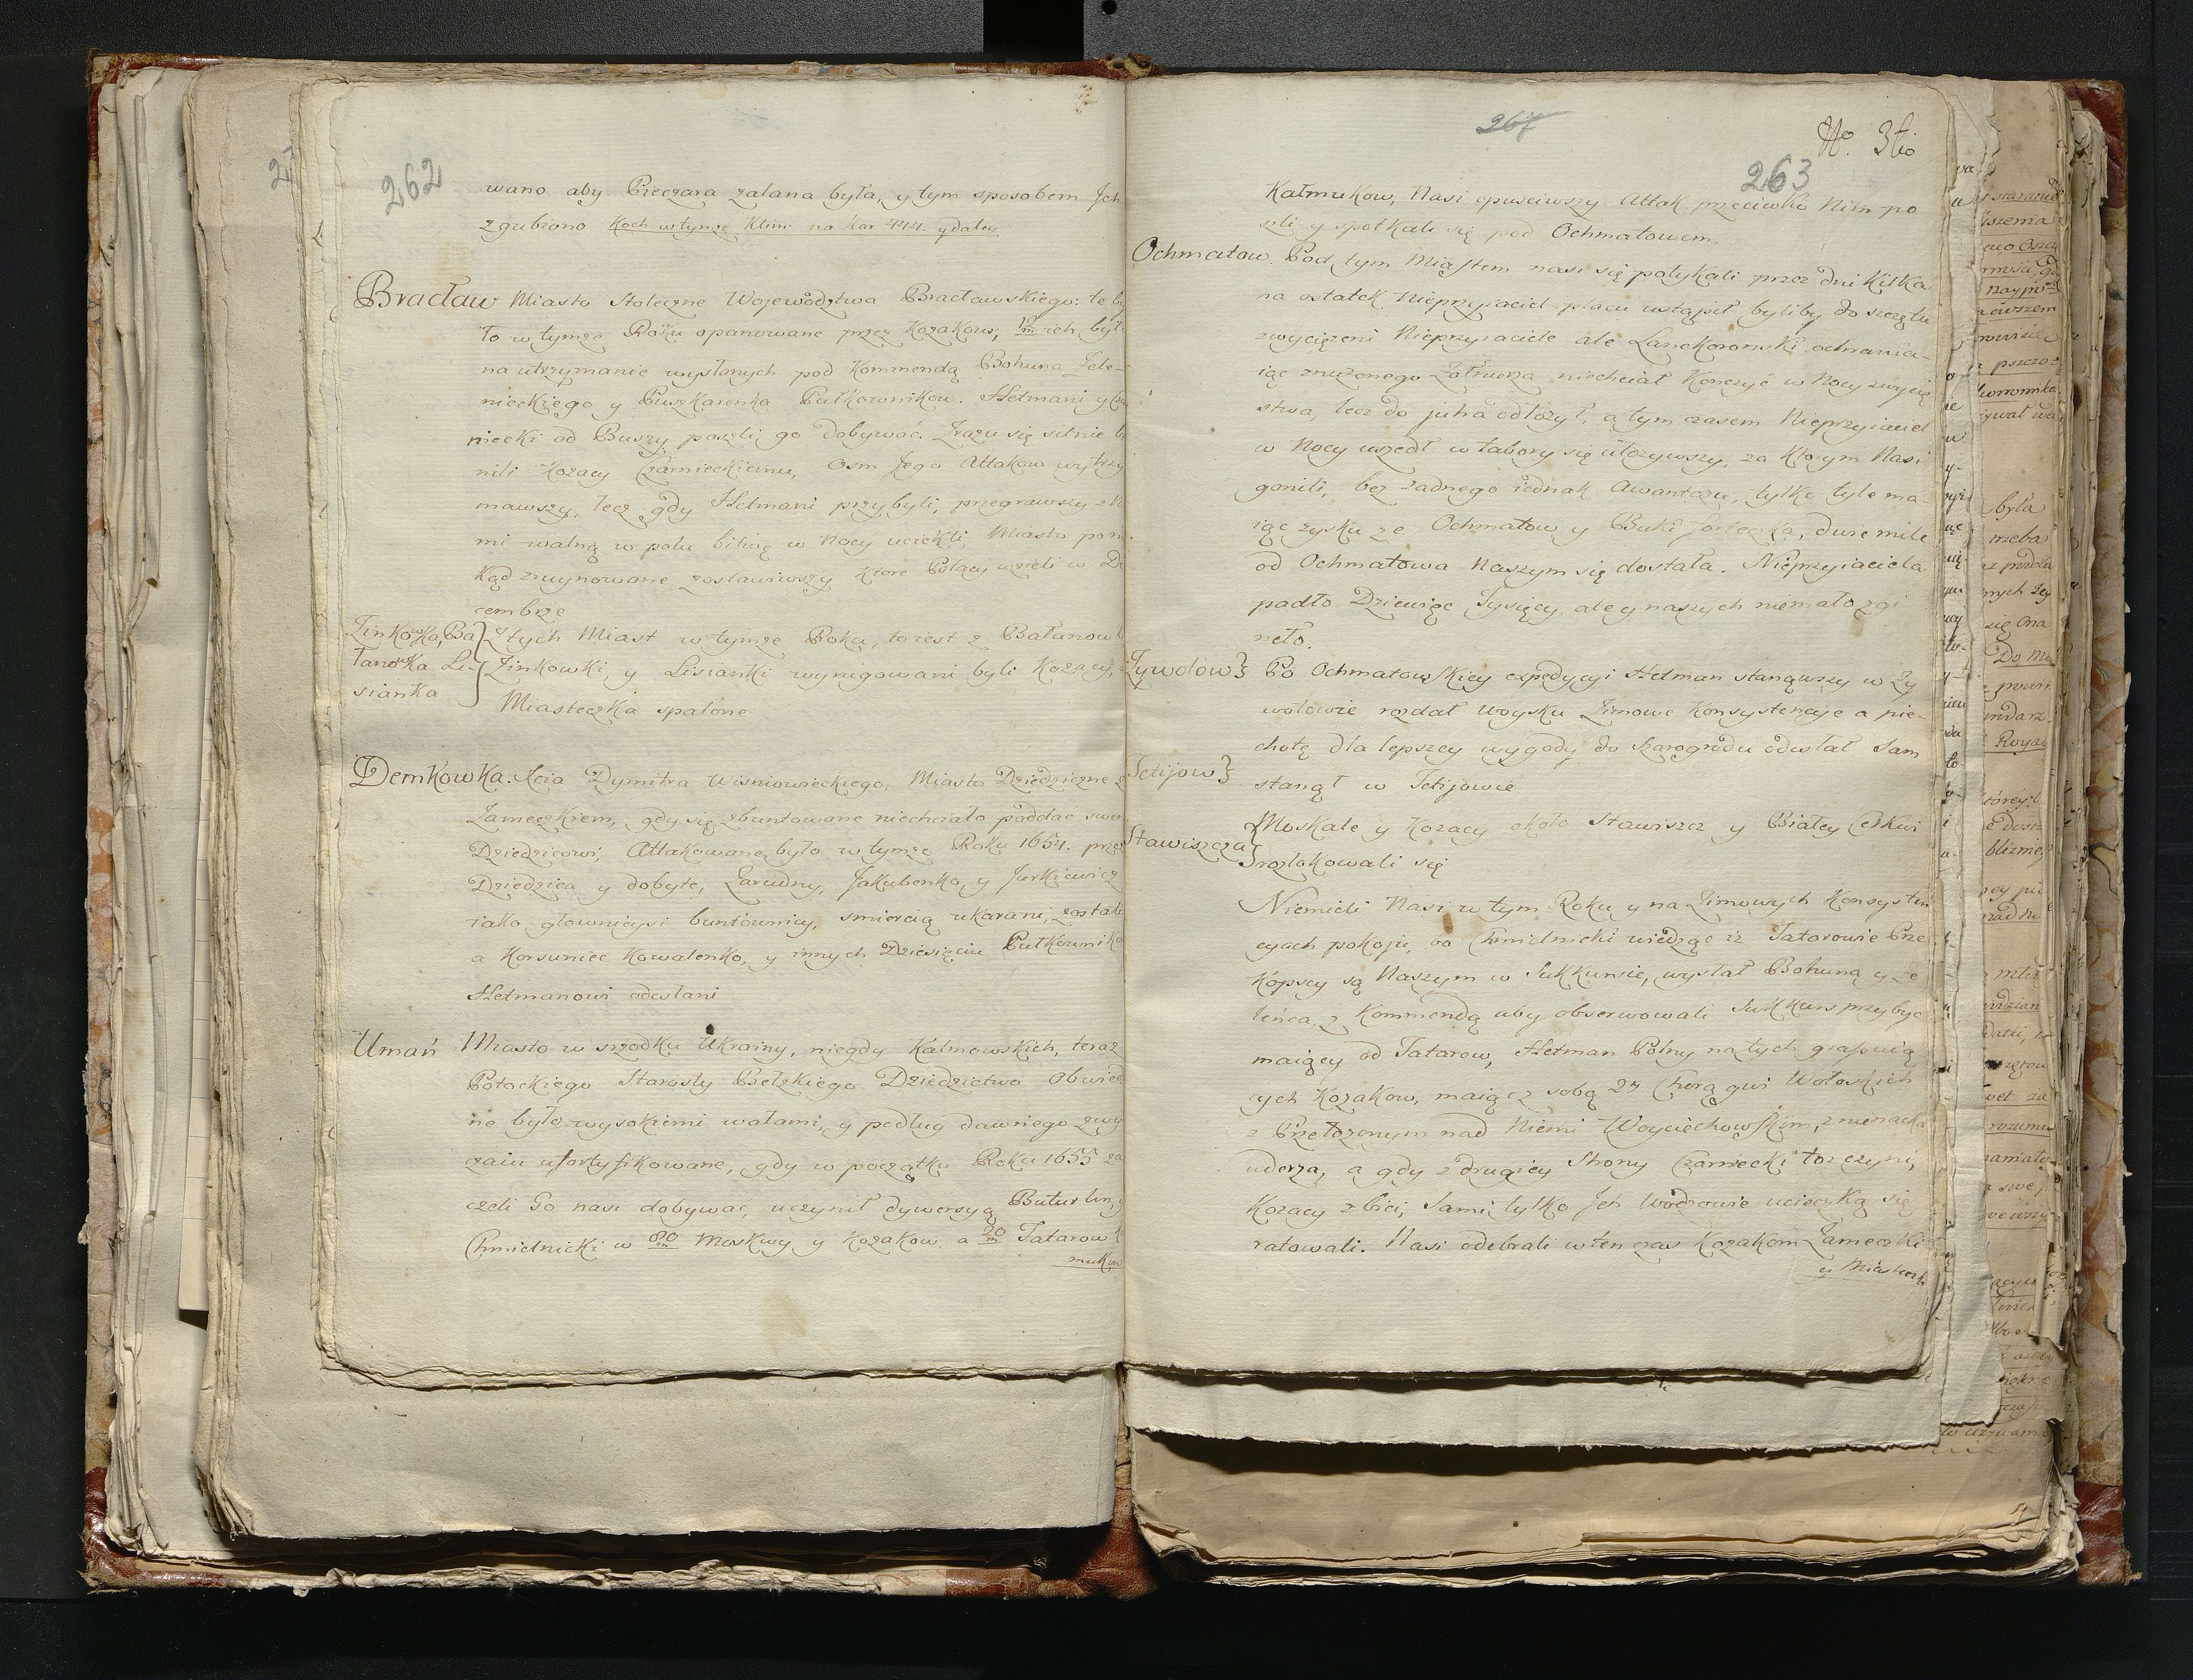 262
wano aby Pieczara zalana była, y tym sposobem Jch
zgubiono Koch w tymże Klim: na Kar 444. y daley.
Bracław Miasto Stołeczne Woiewodztwa Bracławskiego: te by
to w tymże Roku opanowane przez Kozakow; ich był
na utrzymanie wysłanych pod Kommendą Bohuna Zele-
nieckiego y Puszkarenka Pułkownikow. Hetmani y Czar
niecki od Buszy poszli go dobywać. Zrazu się silnie br
nili Kozacy Czarnieckiemu, Osm Jego Attakow wytrzy
mawszy, lecz gdy Hetmani przybyli, przegrawszy z N
mi walną w polu bitwę w Nocy uciekli, Miasto po
kąd zruynowane zostawiwszy które Polacy wzieli w De
cembrze
Zinkowka, Ba
łanowka Li-
sianka
Z tych Miast w tymże Roku, to iest z Bałanowk
Zinkowki, y Lisianki wyrugowani byli Kozacy,
Miasteczka spalone
Demkowka. Xcia Dymitra Wisniowieckiego, Miasto Dziedziczne z
Zameczkiem, gdy się zbuntowane niechciało poddać swe
Dziedzicowi, Attakowane było w tymże Roku 1654. prze
Dziedzica y dobyte, Zarudny, Jakubenko, y Jurkiewicz
iako głownieysi buntownicy, smiercią ukarani, zostali
a Korsuniec Kowalenko, y innych Dziesięciu Pułkowniko
Hetmanowi odesłani
Umań Miasto w srzodku Ukrainy, niegdy Kalinowskich, teraz
Potockiego Starosty Bełzkiego Dziedzictwo Obwied
ne było wysokiemi wałami, y podług dawnego zwy
czaiu ufortyfikowane, gdy w początku Roku 1655 za
czeli Go nasi dobywać, uczynił dywersyą Buturlin, y
Chmielnicki w 80/m Moskwy y Kozakow a 20/m Tatarow K
mukow
267
No. 3tio
263
Kałmukow, Nasi opusciwszy Attak przeciwko Nim po
szli y spotkali się pod Ochmatowem.
Ochmatow. Pod tym Miastem nasi się potykali przez dni Kilka
na ostatek Nieprzyiaciel placu ustąpił byliby do szczętu
zwyciężeni Nieprzyiaciele ale Lanckoronski ochrania-
iąc znużonego Żołnierza niechciał Konczyć w Nocy zwycię
stwa, lecz do jutra odłożył, a tym czasem Nieprzyiaciel
w Nocy uszedł w tabory się ułożywszy, za Ktorym Nasi
gonili, bez żadnego iednak Awantażu, tylko tyle ma-
iąc zysku ze Ochmatow y Buki forteczka, dwie mile
od Ochmatowa Naszym się dostała. Nieprzyiaciela
padło Dziewięc Tysięcy, ale y naszych niemało zgi
neło.
Zywotow Po Ochmatowskiey expedycyi Hetman stanąwszy w Zy
wotowie rozdał Woysku Zimowe Konsystencye a pie-
chotę dla lepszey wygody do Szarogrodu odesłał Sam
Tetijow stanął w Tetijowie
Stawiszcza
Moskale y Kozacy około Stawiszcz y Białey Cerkwi
rozlokowali się
Niemieli Nasi w tym Roku y na Zimowych Konsysten
cyach pokoju, bo Chmielnicki wiedząc iż Tatarowie Pre
kopscy są Naszym w Sukkursie, wysłał Bohuna y Ze
leńca z Kommendą aby obserwowali Sukkurs przybyc
maiący od Tatarow, Hetman Polny na tych grassuią
cych Kozakow, maiąc z sobą 27 Chorągwi Wołoskich
z Przełożonym nad Niemi Woyciechowskim, znienacka
uderza, a gdy z drugiey Strony Czarniecki toż czyni,
Kozacy zbici; Sami tylko Jch Wodzowie ucieczką się
ratowali. Nasi odebrali w ten czas Kozakom Zameczki
y Miasteczk